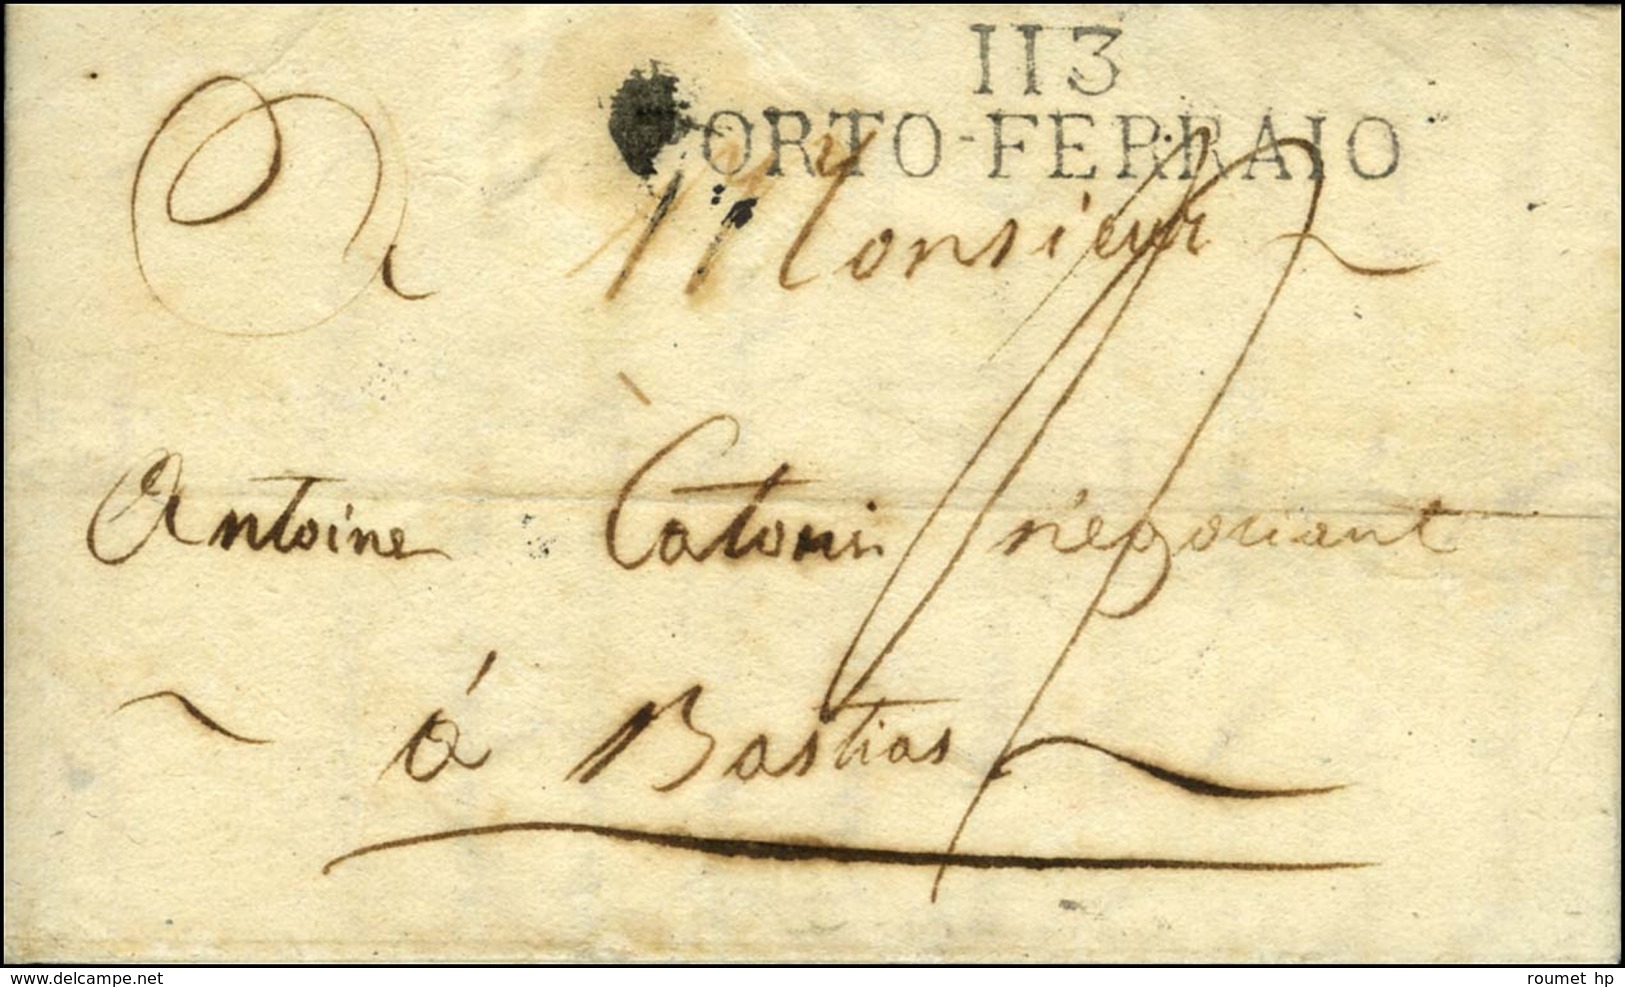 113
PORTO-FERRAJO
A Monsieur
Antoine Catoni négociant
á Bastias
delcampe.net
roumet hp